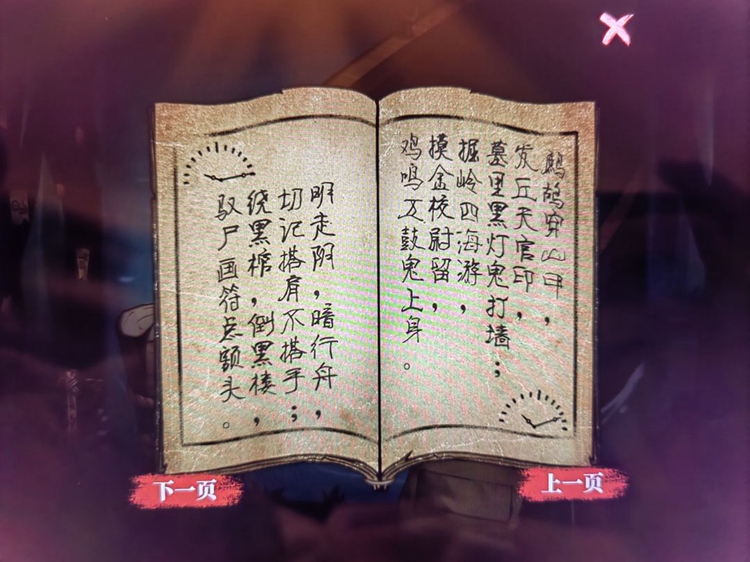 鹧鸪穿山甲，
发丘天官印，
墓里黑灯鬼打墙；
掘岭四海游，
摸金校尉留，
鸡鸣五鼓鬼上身。
明走阴，暗行舟，
切记搭肩不搭手；
绕黑棺，倒黑楼，
驭尸画符点额头。
下一页
上一页